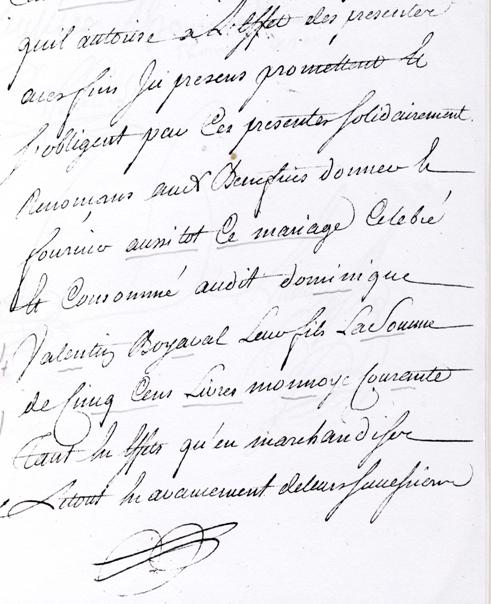 qu'il autorise a L'effet des presentes
aces fins Icy presens promettent Et
s'obligent par Ces presentes solidairement
Renoncans aux Benefices donner Et
fournir aussitot Ce mariage Celebré
Et Consommé audit dominique
Valentin Boyaval Leur fils La Somme
de Cinq Cens Livres monnoye Courante
Tant En Effets qu'en marchandises
Le tout En avancement de leurs successions